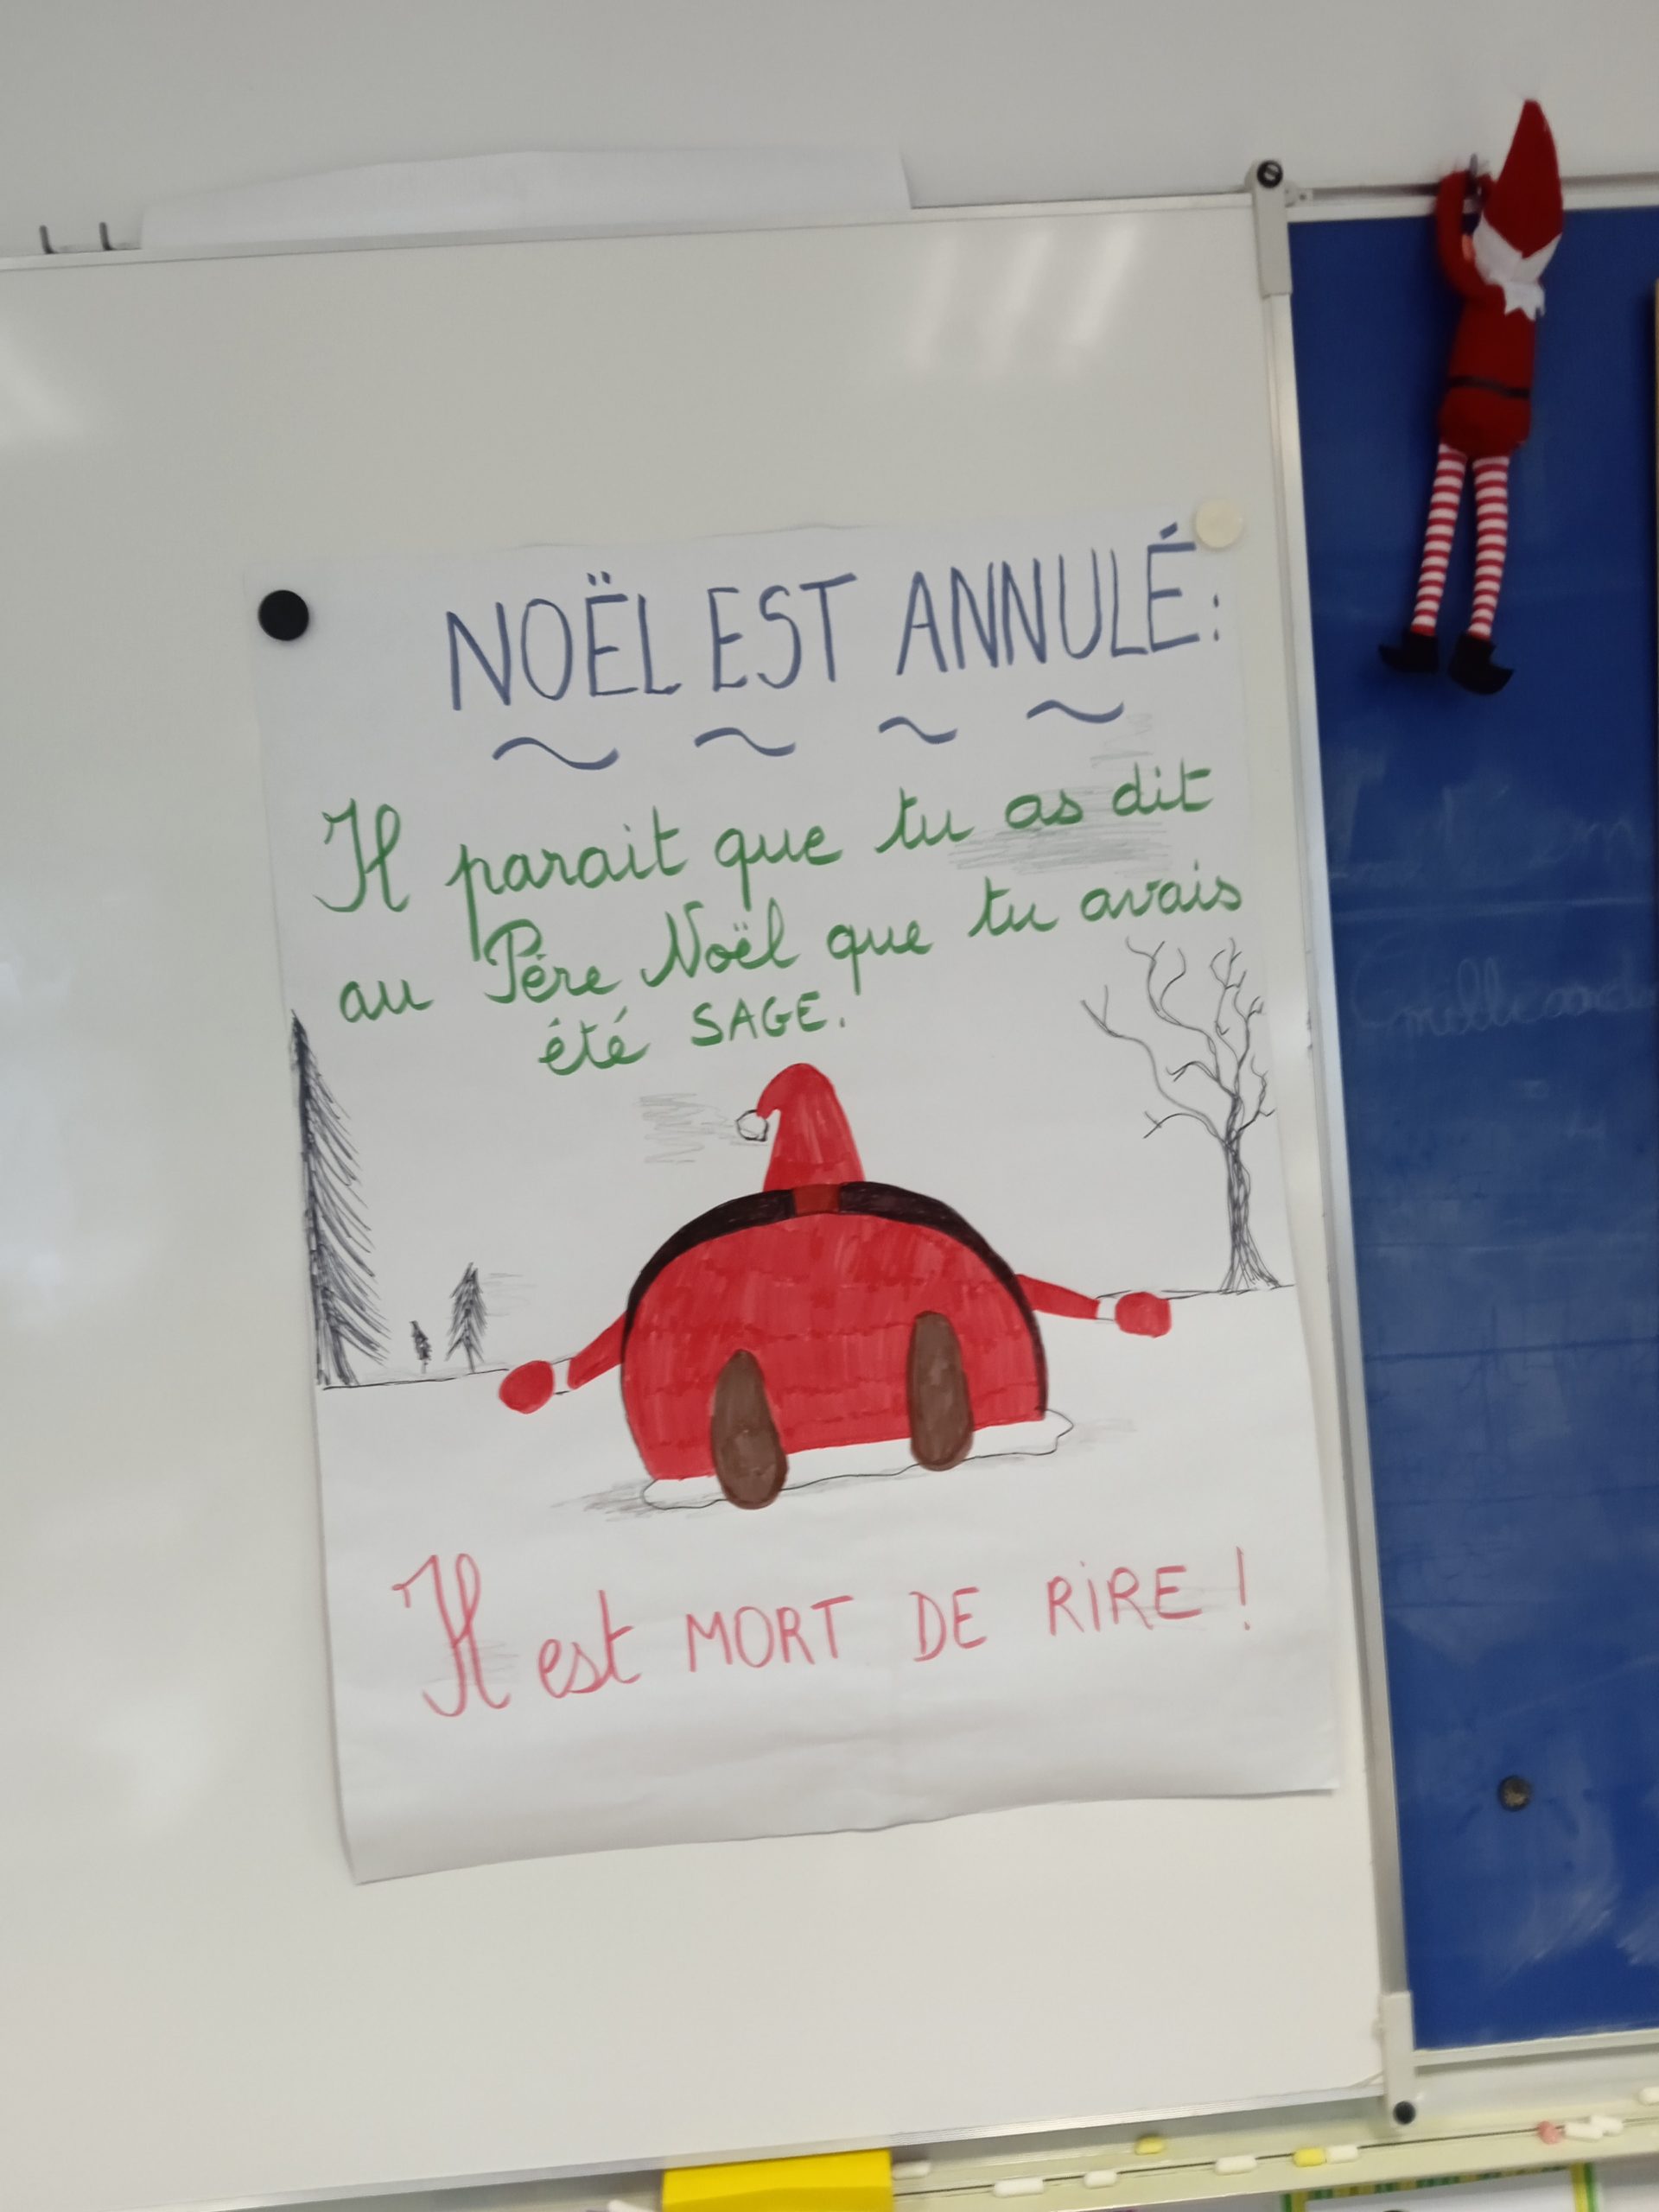 NOËL EST ANNULÉ:
Il parait que tu as dit
au Père Noël que tu avais
été SAGE!
Il est MORT DE RIRE !